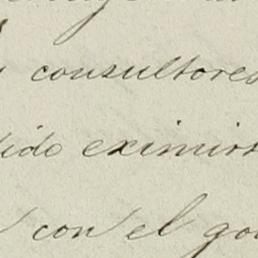 consultores
ido eximirs
con el go